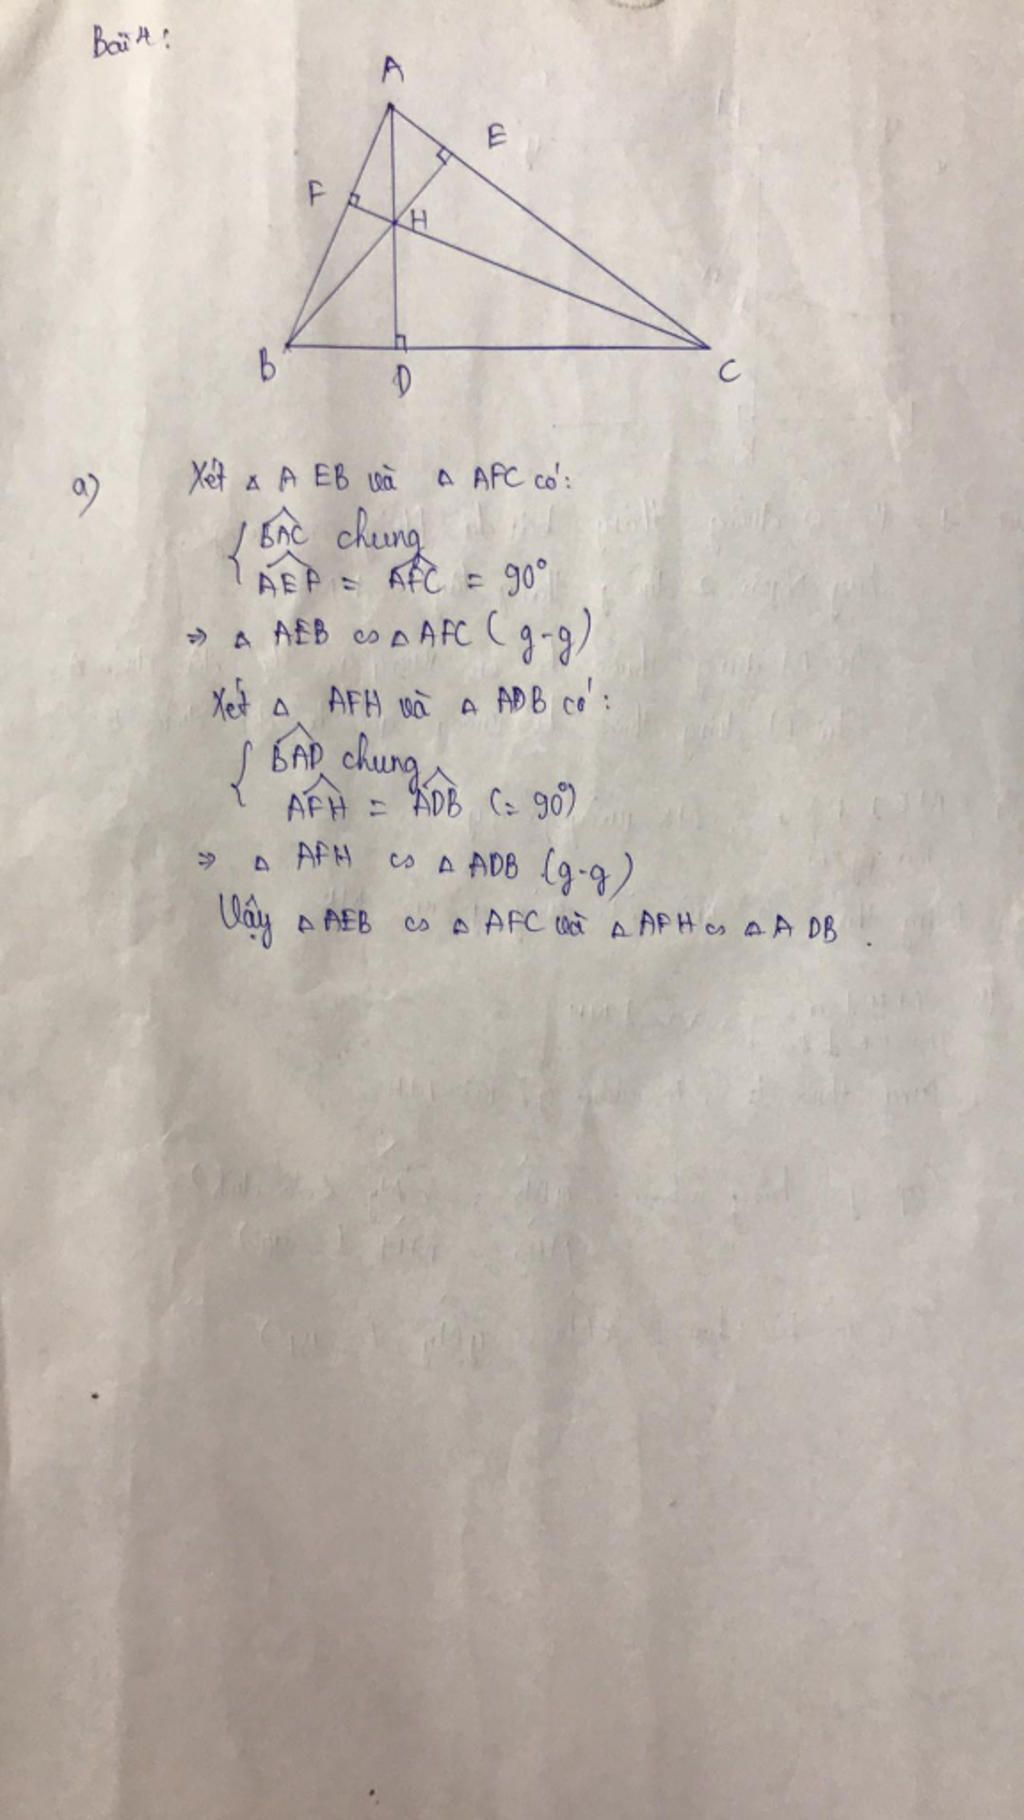 Bài 4:
A
E
F
H
B
D
C
a) Xét △ AEB và △ AFC có:
BAC chung
AEB = AFC = 90°
=> △ AEB ∽ △ AFC (g-g)
Xét △ AFH và △ ADB có:
BAD chung
AFH = ADB (= 90°)
=> △ AFH ∽ △ ADB (g-g)
Vậy △ AEB ∽ △ AFC và △ AFH ∽ △ ADB.